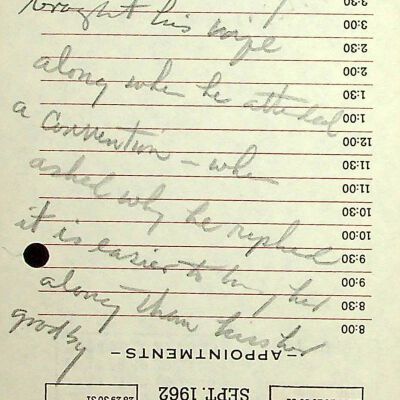 brought his wife
along when he attended
a convention - when
asked why he replied
it is easier to bring her
along than kiss her
goodby
3:30
3:00
2:30
2:00
1:30
1:00
12:00
11:30
11:00
10:30
10:00
9:30
9:00
8:30
8:00
-APPOINTMENTS-
SEPT. 1962
28 29 30 31